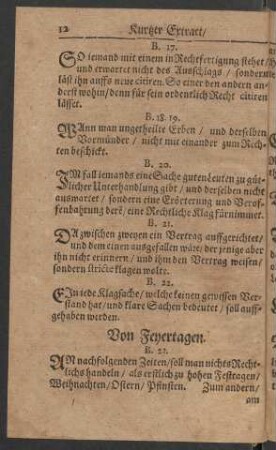 12 Kurtzer Extratt/
B. 17.
SO iemand mit einem in Rechtfertigung stehet/
und erwartet nicht des Ausschlags / sondern
läst ihn auffs neue citiren. So einer den andern an-
derst wohin/denn für sein ordentlich Recht citiren
lässet.
B. 18. 19.
WAnn man ungetheilte Erben / und derselben
Vormünder / nicht mit einander zum Rech-
ten beschickt.
B. 20.
IM fall iemands eine Sache guten deuten zu güt-
licher Unterhandlung gibt / und derselben nicht
auswartet / sondern eine Erörterung und Veroff-
fenbahrung derē / eine Rechtliche Klag fürnimmet.
B. 21.
DA zwischen zweyen ein Vertrag auffgerichtet/
und dem einen ausgefallen wäre/ der jenige aber
ihn nicht erinnern / und ihm den Vertrag weisen/
sondern stricte klagen wolte.
B. 22.
EIn iede Klagsache / welche keinen gewissen Ver-
stand hat / und klare Sachen bedeutet / soll auff-
gehaben werden.
Von Feyertagen.
B. 23.
AM nachfolgenden Zeiten/soll man nichts Recht-
lichs handeln / als erstlich zu hohen Festtagen/
Weihnachten/Ostern/ Pfinsten. Zum andern/
am